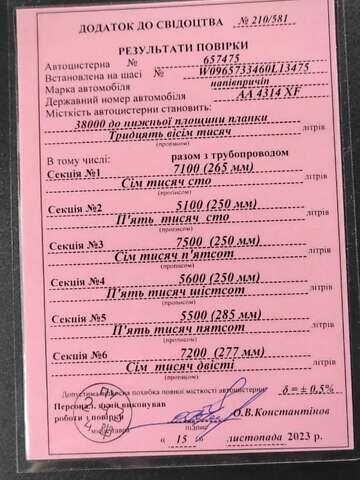 ДОДАТОК ДО СВІДОЦТВА № 210/581
РЕЗУЛЬТАТИ ПОВІРКИ
Автоцистерна № 657475
Встановлена на шасі № W0965733460L13475
Марка автомобіля напівпричіп
Державний номер автомобіля АА 4314 XF
Місткість автоцистерни становить:
38000 до нижньої площини планки
Тридцять вісім тисяч літрів
(прописом)
В тому числі: разом з трубопроводом
Секція №1 7100 (265 мм)
Сім тисяч сто літрів
(прописом)
Секція №2 5100 (250 мм)
П'ять тисяч сто літрів
(прописом)
Секція №3 7500 (250 мм)
Сім тисяч п'ятсот літрів
(прописом)
Секція №4 5600 (250 мм)
П'ять тисяч шістсот літрів
(прописом)
Секція №5 5500 (285 мм)
П'ять тисяч пятсот літрів
(прописом)
Секція №6 7200 (277 мм)
Сім тисяч двісті літрів
(прописом)
Допустима відносна похибка повної місткості автоцистерни δ = ± 0,5%
Персонал, який виконував
роботи з повірки О.В.Константінов
підпис
« 15 » листопада 2023 р.